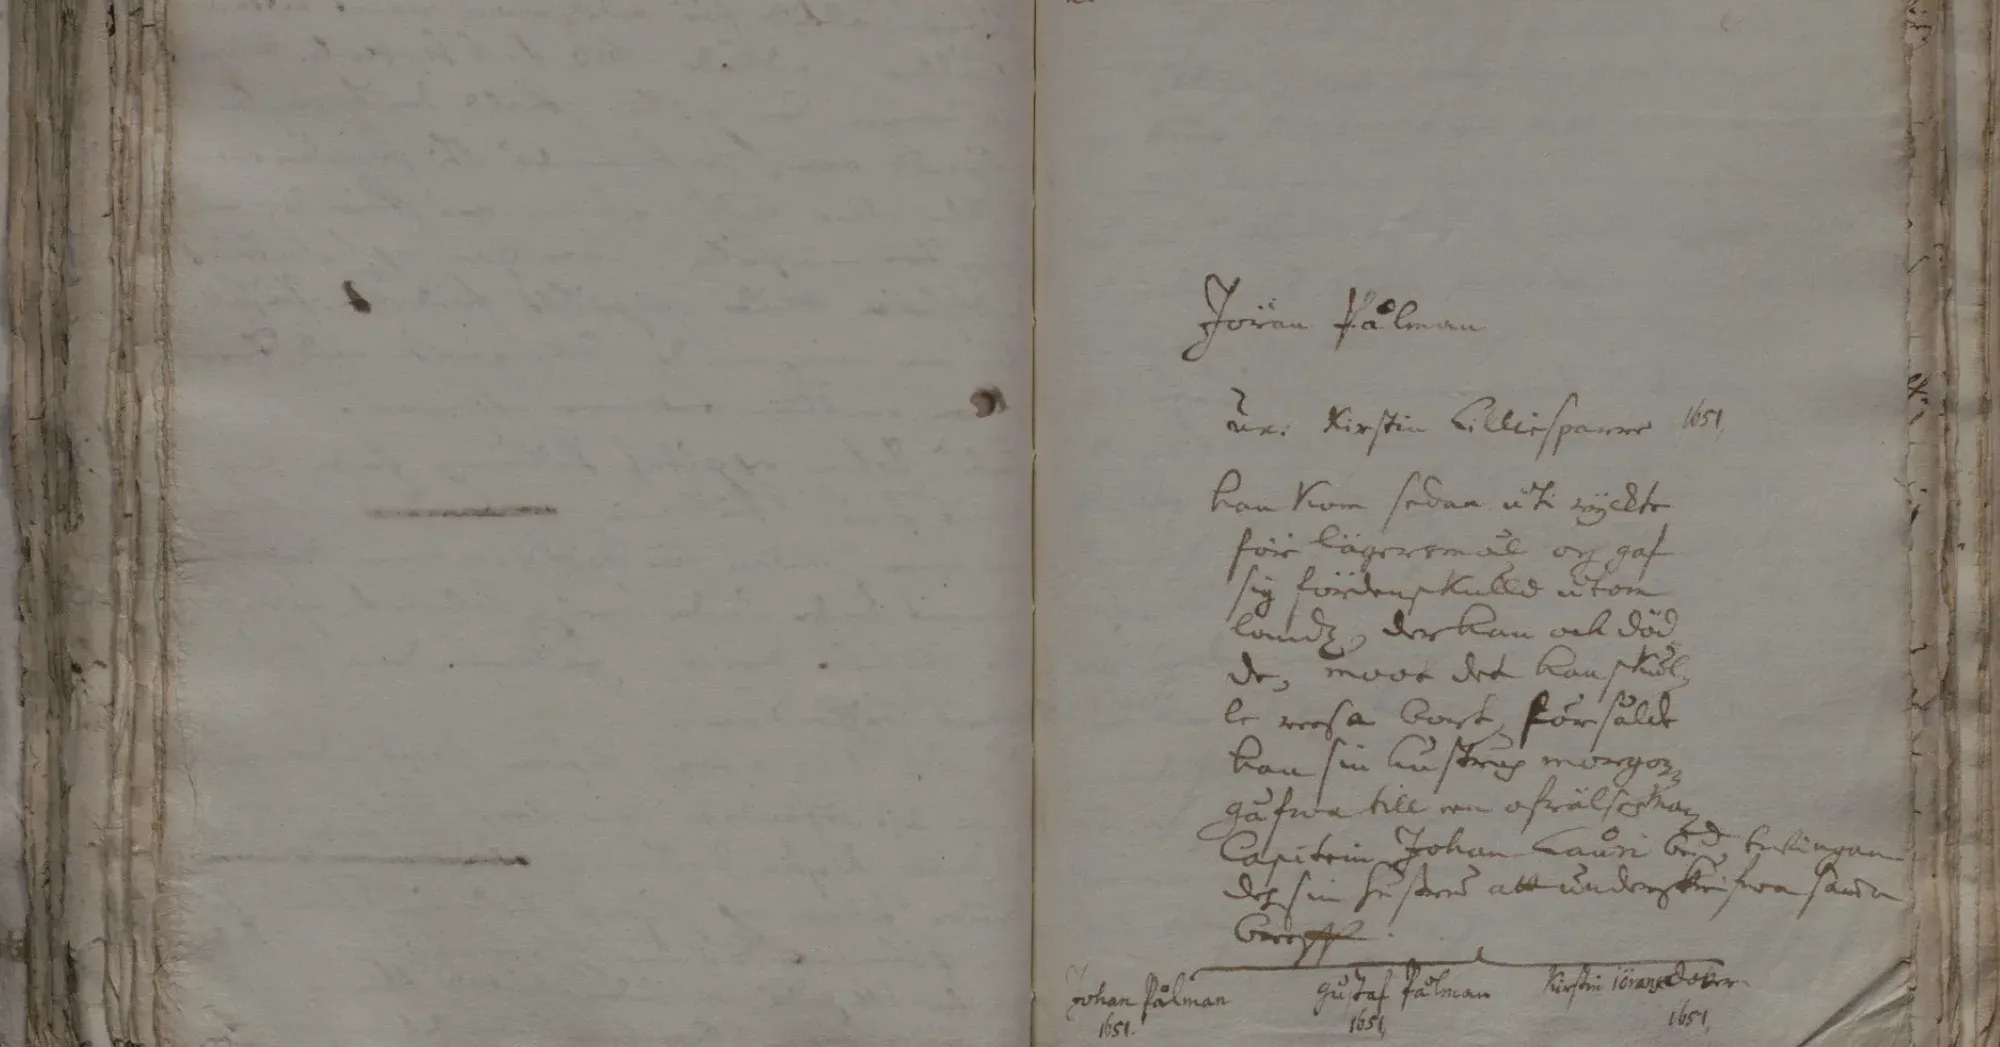 Jöran Pålman
ux: Kirstin Lilliesparre 1651,
han kom sedan uti rychte
för lägersmål och gaf
sig fördenskulld utom
landz, der han och död
de, moot det han skul,
le reesa bort, försålde
han sin hustrus morgon,
gåfva till een ofrälse man
Capitein Johan Lauri bd, betingan
des sin hustru att underskrifva samma
breff.
Johan Pålman
1651.
Gustaf Pålman
1651,
Kirstin Jörans doter
1651,